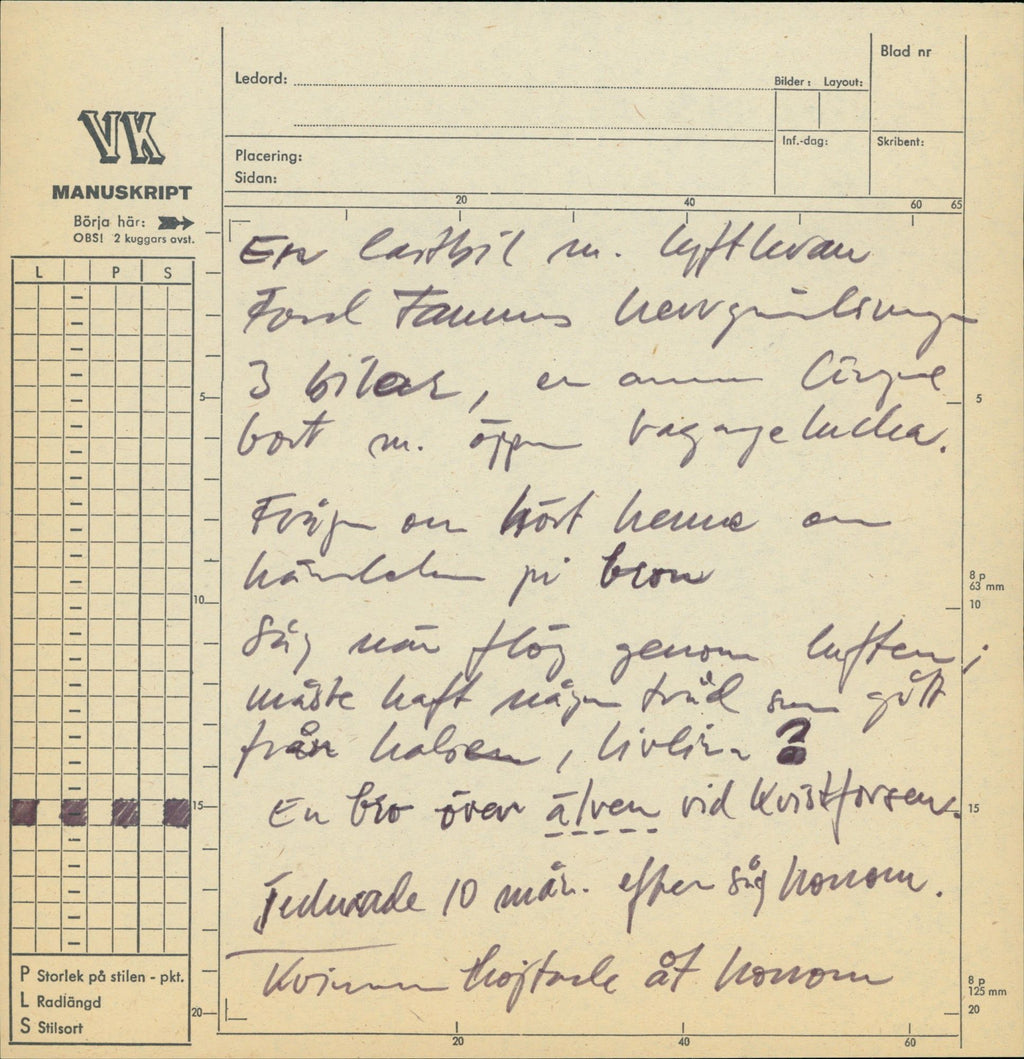 Blad nr
Ledord:
Bilder: Layout:
Inf.-dag:
Skribent:
Placering:
Sidan:
VK
MANUSKRIPT
Börja här:
OBS! 2 kuggars avst.
20 40 60 65
L P S
En lastbil m. lyftkran
Ford Taunus herrgårds
3 bilar, en annan längre
bort m. öppen bagagelucka.
5 5
Frågan om hört henne om
händelsen på bron
8 p
63 mm
10 10
Såg när flög genom luften,
måste haft någon tråd som gått
från halsen, livlina?
En bro över älven vid Kvistforsen.
15 15
10 mån. efter såg honom.
Kvinnan höjtade åt honom
P Storlek på stilen - pkt.
L Radlängd
S Stilsort
8 p
125 mm
20 20
20 40 60